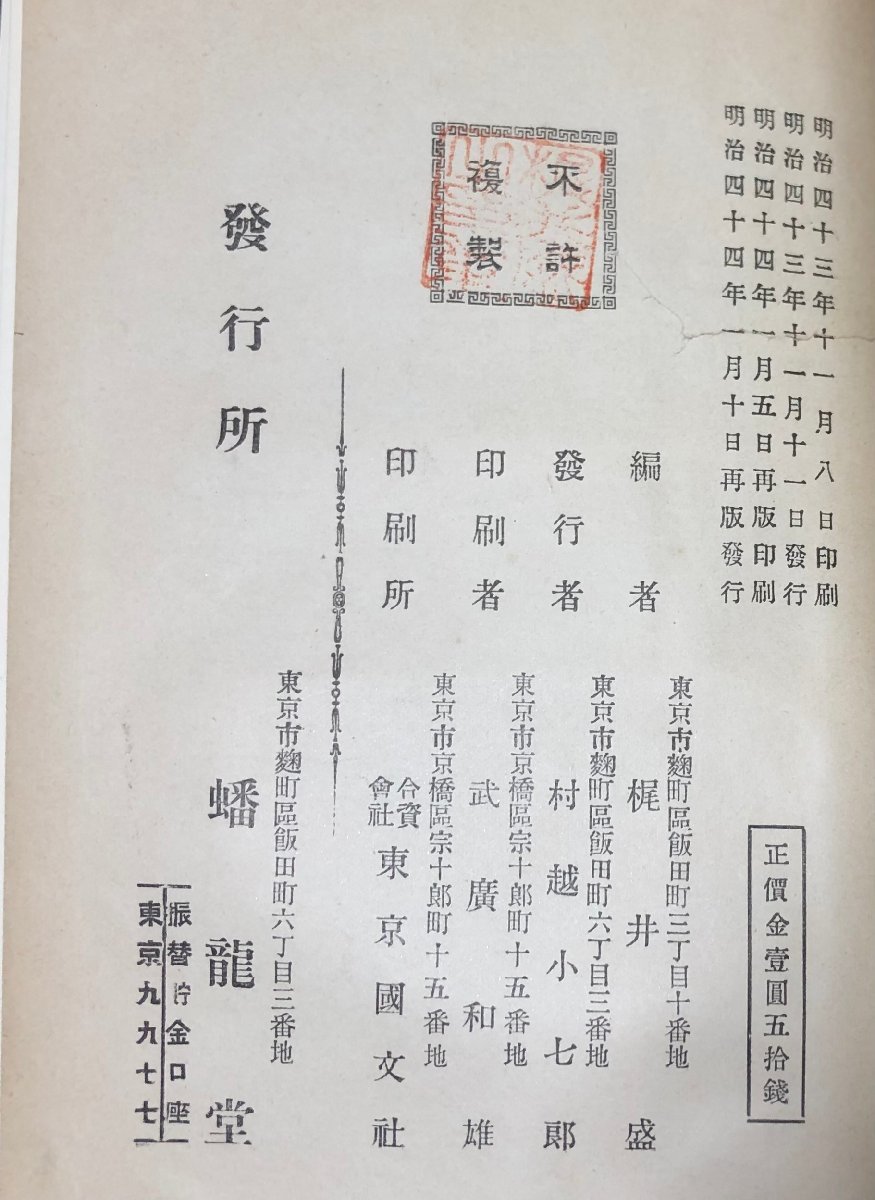 明治四十三年十一月八日印刷
明治四十三年十一月十一日發行
明治四十四年一月五日再版印刷
明治四十四年一月十日再版發行
正價金壹圓五拾錢
不許
複製
東京市麴町區飯田町三丁目十番地
編者 梶井盛
東京市麴町區飯田町六丁目三番地
發行者 村越小七郎
東京市京橋區宗十郎町十五番地
印刷者 武廣和雄
東京市京橋區宗十郎町十五番地
印刷所 合資會社 東京國文社
東京市麴町區飯田町六丁目三番地
發行所 蟠龍堂
振替貯金口座
東京九九七七